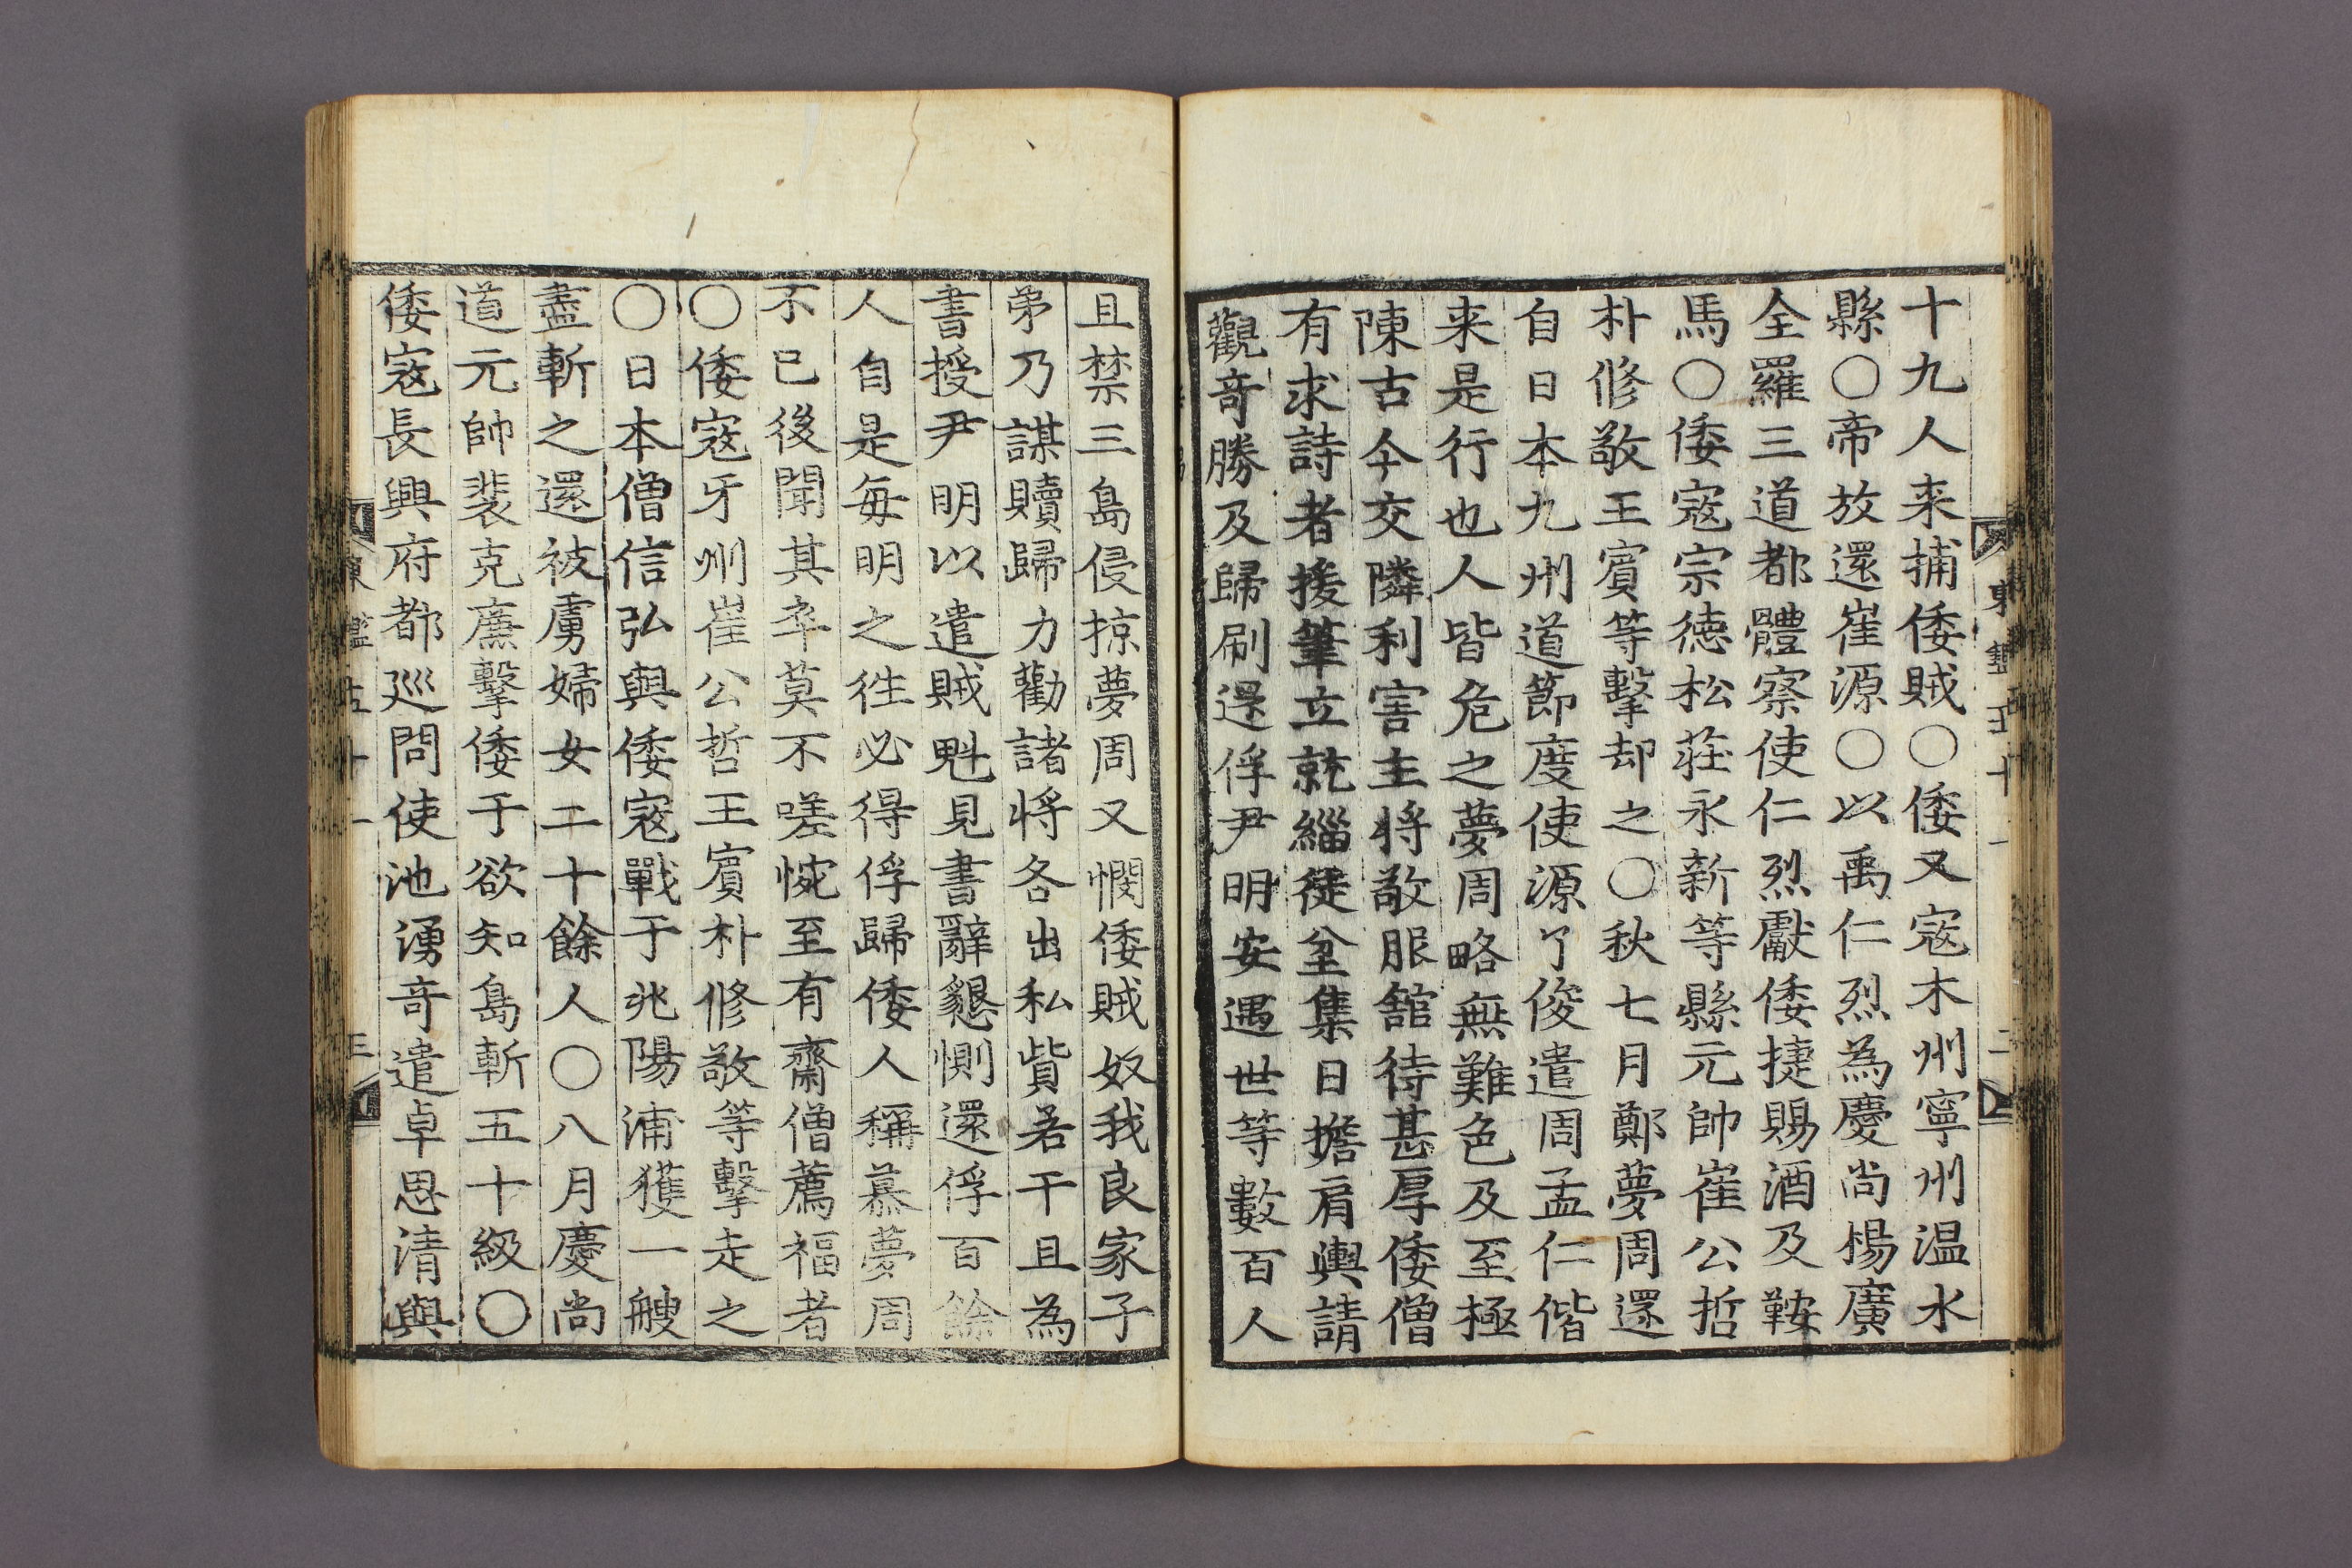 十九人来捕倭賊〇倭又寇木州寧州温水
縣〇帝放還崔源〇以禹仁烈為慶尚楊廣
全羅三道都體察使仁烈獻倭捷賜酒及鞍
馬〇倭寇宗德松莊永新等縣元帥崔公哲
朴修敬王賓等擊却之〇秋七月鄭夢周還
自日本九州道節度使源了俊遣周孟仁偕
来是行也人皆危之夢周略無難色及至極
陳古今交隣利害主将敬服舘待甚厚倭僧
有求詩者援筆立就緇徒坌集日擔肩輿請
觀奇勝及歸刷還俘尹明安遇世等數百人
且禁三島侵掠夢周又憫倭賊奴我良家子
弟乃謀贖歸力勸諸将各出私貲若干且為
書授尹明以遣賊魁見書辭懇惻還俘百餘
人自是每明之徃必得俘歸倭人稱慕夢周
不已後聞其卒莫不嗟惋至有齋僧薦福者
〇倭寇牙州崔公哲王賓朴修敬等擊走之
〇日本僧信弘與倭寇戰于兆陽浦獲一艘
盡斬之還被虜婦女二十餘人〇八月慶尚
道元帥裴克廉擊倭于欲知島斬五十級〇
倭寇長興府都巡問使池湧奇遣卓思清與
東鑑五十一
二
東鑑五十一
三